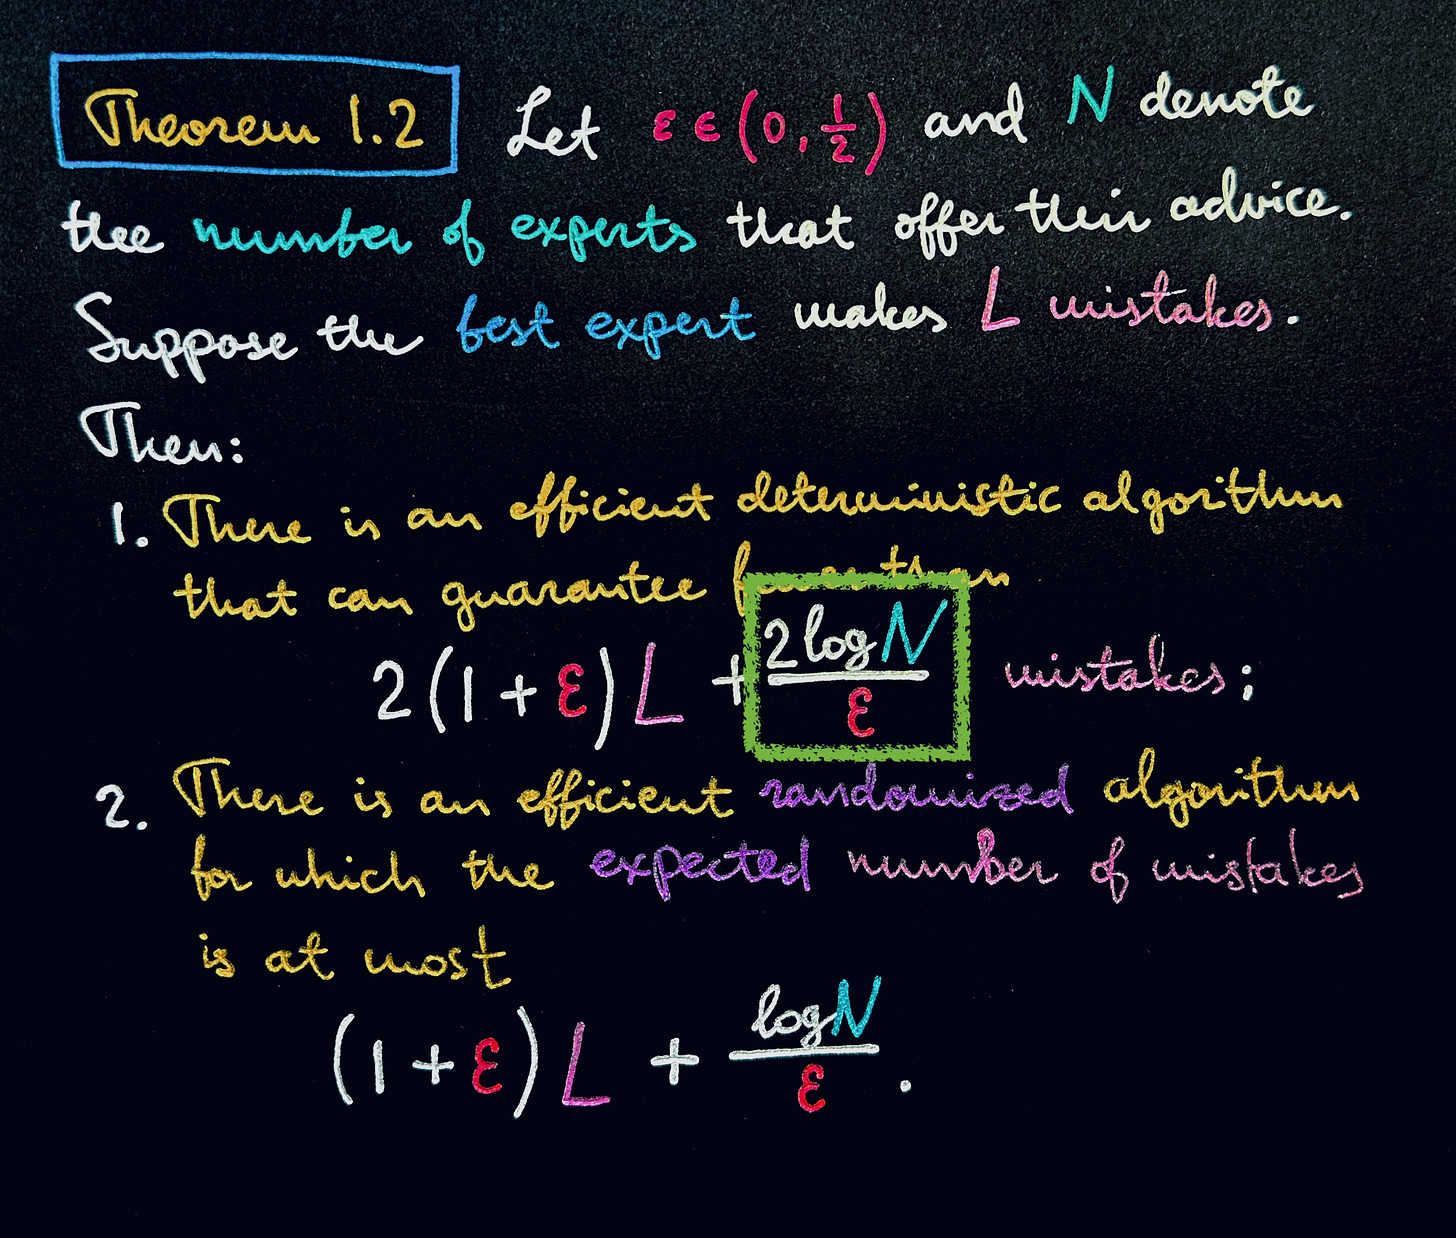 Theorem 1.2 Let ε ∈ (0, 1/2) and N denote
the number of experts that offer their advice.
Suppose the best expert makes L mistakes.
Then:
1. There is an efficient deterministic algorithm
that can guarantee fewer than
2(1 + ε)L + 2 log N / ε mistakes;
2. There is an efficient randomized algorithm
for which the expected number of mistakes
is at most
(1 + ε)L + log N / ε.